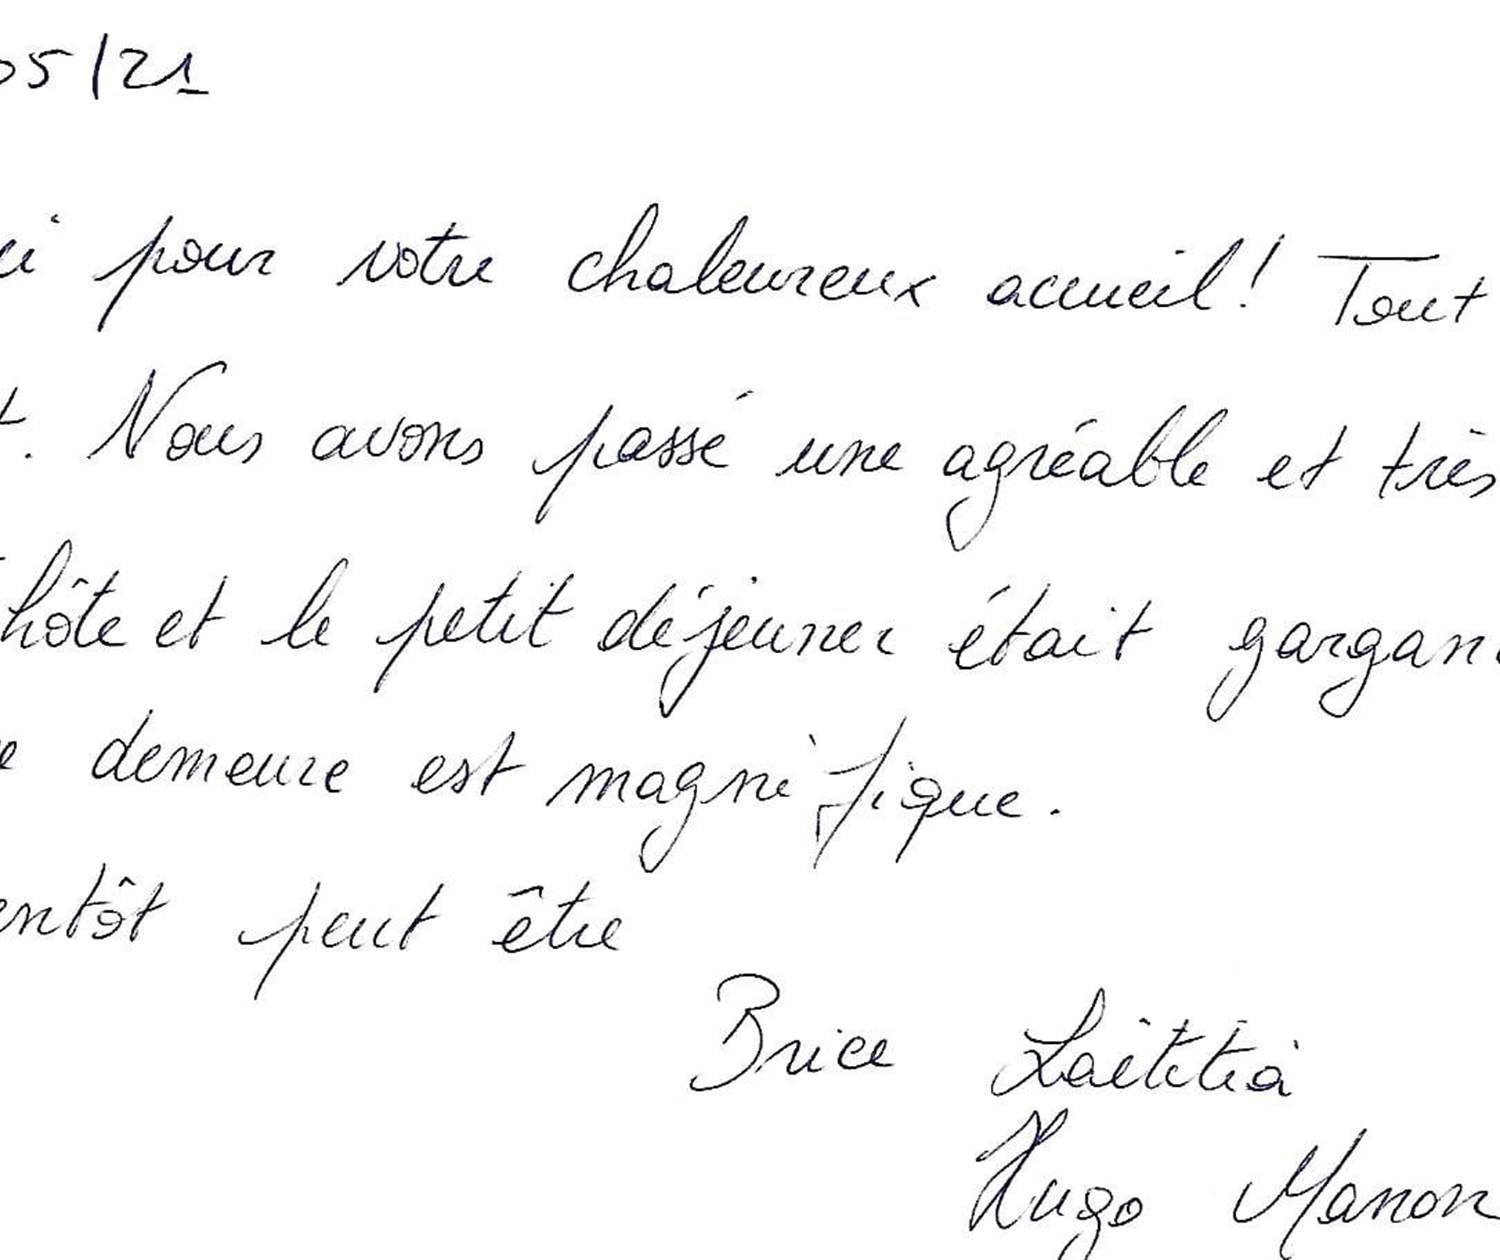 05/21
ci pour votre chaleureux accueil! Tout
t. Nous avons passé une agréable et très
hôte et le petit déjeuner était gargan
e demeure est magnifique.
entôt peut être
Brice Laëtitia
Hugo Manon